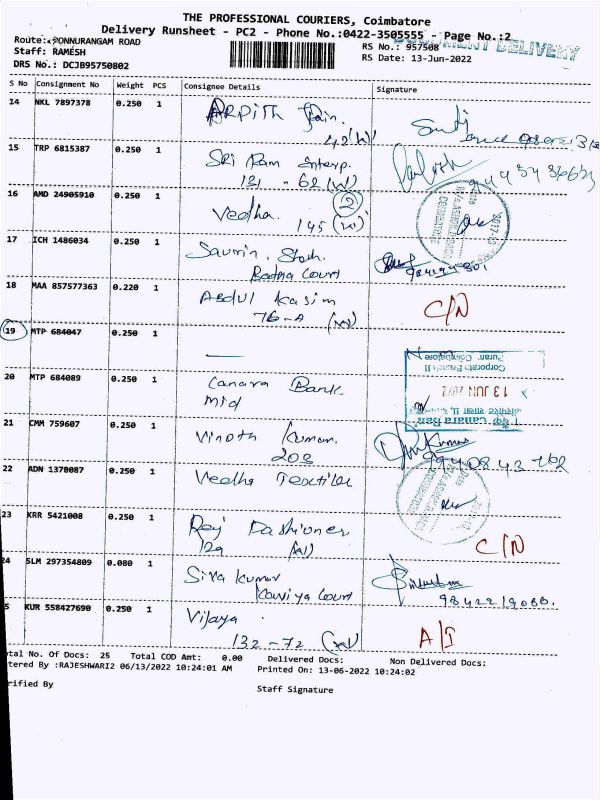 THE PROFESSIONAL COURIERS, Coimbatore
Delivery Runsheet - PC2 - Phone No.:0422-3505555 - Page No.:2
DOCUMENT DELIVERY
Route: PONNURANGAM ROAD
RS No.: 957508
Staff: RAMESH
RS Date: 13-Jun-2022
DRS No.: DCJB95750802
S No Consignment No Weight PCS Consignee Details Signature
14 NKL 7897378 0.250 1 ARPITH Jain.
42(W)
15 TRP 6815387 0.250 1 Sri Ram Enterp.
121 - 62 (W)
16 AMD 24905910 0.250 1 Vedha. (2)
145 (W)
17 ICH 1486034 0.250 1 Saurin. Shah.
Padma Court
18 MAA 857577363 0.220 1 Abdul Kasim C/N
76-A (W)
19 MTP 684047 0.250 1 —
20 MTP 684089 0.250 1 Canara Bank
Mid
Puram Coimbatore
Corporate Branch II
13 JUN 2022
Canara Ban
21 CMM 759607 0.250 1 Vinoth Kumar. Kumar
203
22 ADN 1378087 0.250 1 Vedha Textiles
23 KRR 5421008 0.250 1 Raj Dashioner C/N
129 (W)
24 SLM 297354809 0.080 1 Siva Kumar
Kaviya Court 9842219080.
5 KUR 558427690 0.250 1 Vijaya A/I
132-72 (W)
tal No. Of Docs: 25 Total COD Amt: 0.00 Delivered Docs: Non Delivered Docs:
tered By :RAJESHWARI2 06/13/2022 10:24:01 AM Printed On: 13-06-2022 10:24:02
rified By
Staff Signature